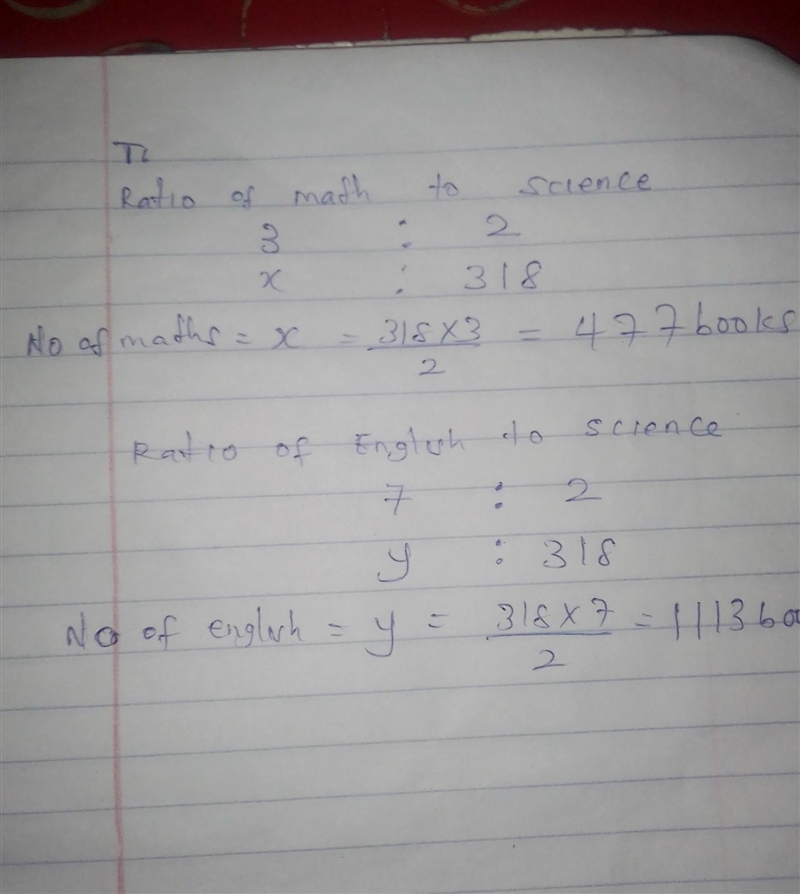 Ratio of math to science
3 : 2
x : 318
No of maths = x = 318 x 3 / 2 = 477 books
Ratio of English to science
7 : 2
y : 318
No of english = y = 318 x 7 / 2 = 1113 boo